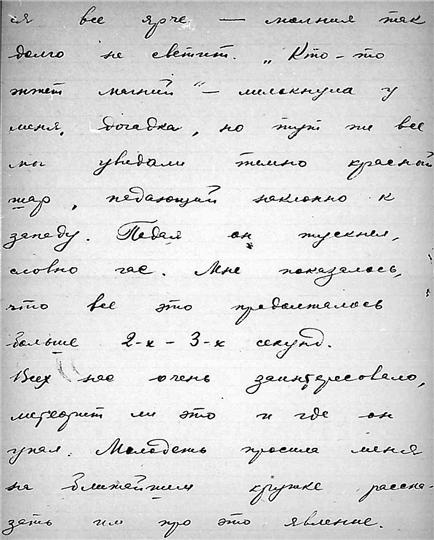 ся все ярче — молния так
долго не светит. „Кто-то
жжет магний“ — мелькнула у
меня, догадка, но тут же все
мы увидали темно красный
шар, падающий наклонно к
западу. Падая он тускнел,
словно гас. Мне показалось,
что все это продолжалось
больше 2-х – 3-х секунд.
Всех нас очень заинтересовало,
метеорит ли это и где он
упал. Молодежь просила меня
на ближайшем кружке расска-
зать им про это явление.